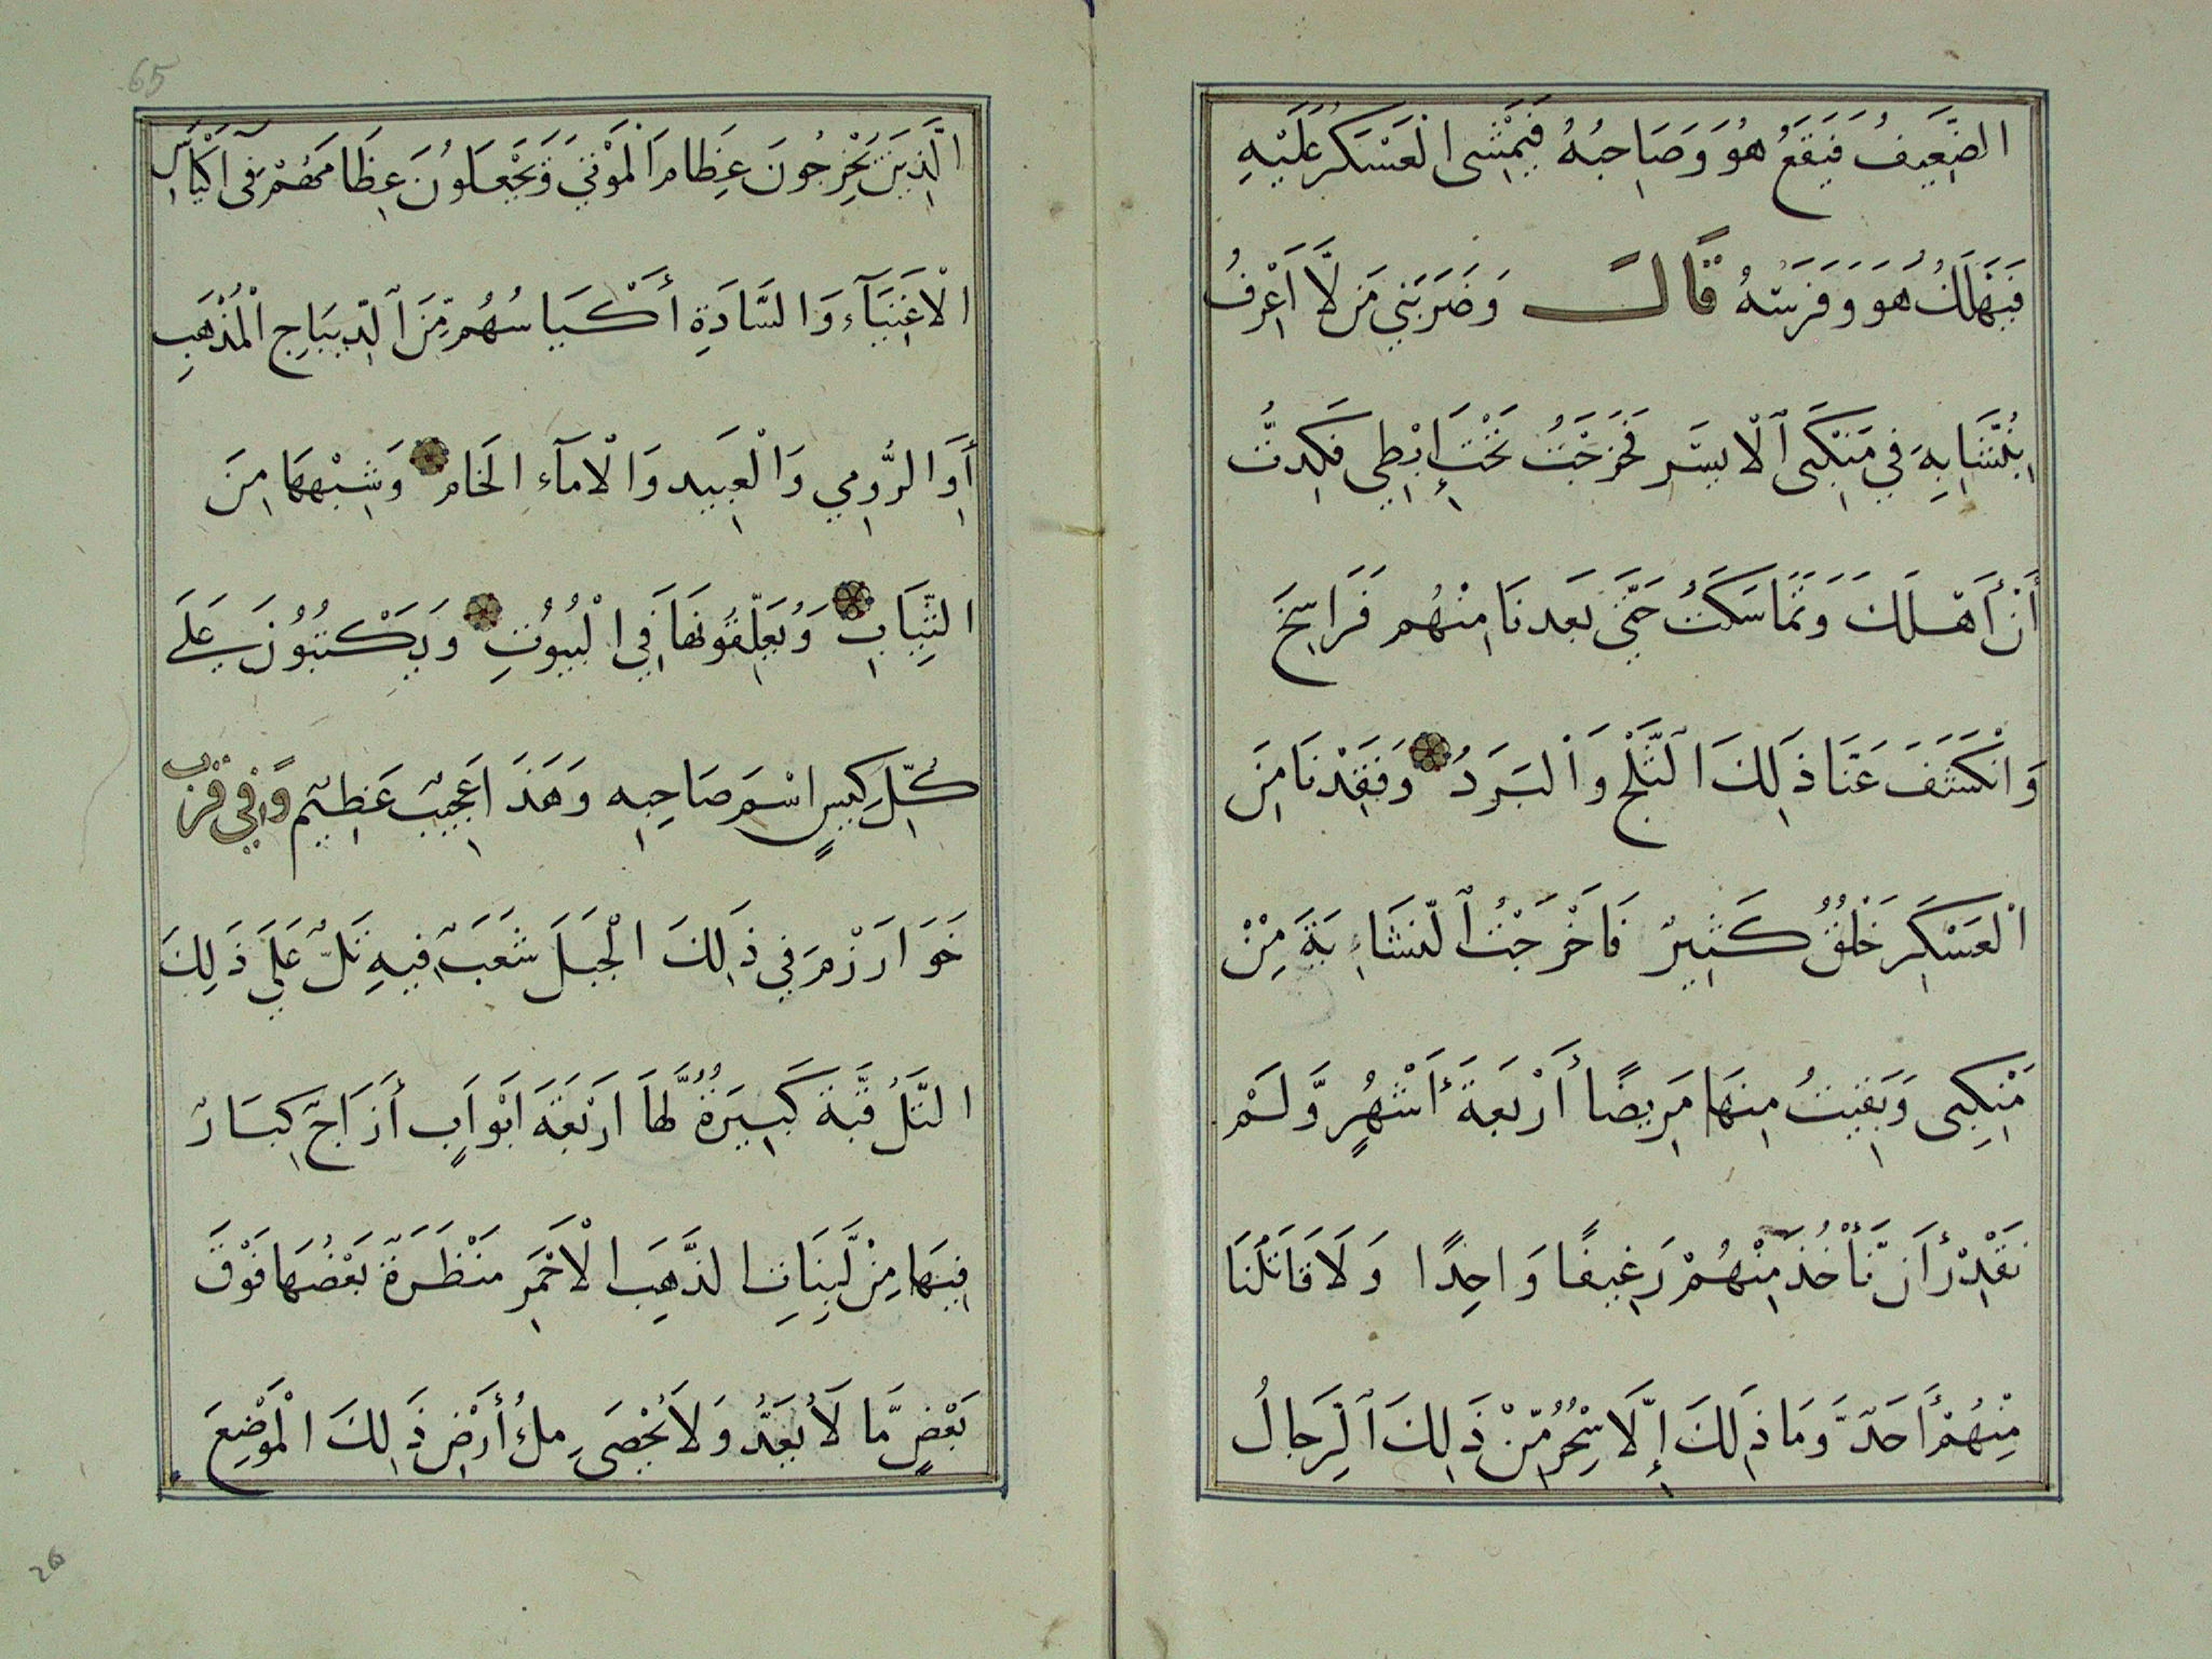 الضَّعِيفُ فَيَقَعُ هُوَ وَصَاحِبُهُ فَيَمْشِى الْعَسْكَرُ عَلَيْهِ
فَيَهْلَكُ هُوَ وَفَرَسَهُ قَالَ وَضَرَبَنِي مَن لَّا أَعْرِفُ
بِنُشَّابِهِ فِي مَنْكَبِى الْأَيسَرِ فَخَرَجَتْ تَحْتَ إِبْطِي فَكِدتُّ
أَنْ أَهْلَكَ وَتَمَاسَكْتُ حَتَّى بَعَدنَا مِنْهُم فَرَاسِخَ
وَانْكَشَفَ عَنَّا ذَلِكَ الثَّلْجُ وَالْبَرَدُ وَفَقَدْنَا مِنَ
الْعَسْكَرِ خَلْقٌ كَثِيرٌ فَاَخْرَجْتُ النَّشَابَةَ مِنْ
مَنْكِبِى وَبَقِيتُ مِنهَا مَرِيضًا أَرْبَعَةَ أَشْهُرٍ وَّلَمْ
نَقْدِرْ أَن نَّأْخُذَ مِنْهُمْ رَغِيفًا وَاحِدًا وَلَا قَاتَلَنَا
مِنْهُمْ أَحَدٌ وَّمَا ذَلِكَ إِلَّا سِحْرٌ مِّنْ ذَلِكَ الرِّجَالُ
65
الَّذِينَ يَخْرِجُونَ عِظَامَ الْمَوْتَى وَيَجْعَلُونَ عِظَامَهُمْ فِى أَكْيَاسٍ
الْأَغْنِيَآءِ وَالسَّادَةِ أَكْيَاسُهُم مِّنَ الدِّيبَاجِ الْمُذْهَبِ
أَوِ الرُّومِي وَالْعَبِيد وَالْامَآء الخَام وَشِبْهِهَا مِنَ
الثِّيَابِ وَيُعَلِّقُونَهَا فِي الْبُيُوتِ وَيَكْتُبُوْنَ عَلَى
كُلِّ كِيسٍ اسْمَ صَاحِبِه وَهَذَا عَجِيبٌ عَظِيمٌ وَفِي قُرْبِ
خَوَارَزْمَ فِي ذَلِكَ الْجَبَلَ شَعَبٌ فِيهِ تَلٌّ عَلَى ذَلِكَ
التَّلُ قُبَّة كَبِيرَةٌ لَّهَا ارَبْعَةَ ابَوَابٍ أَزَاجٌ كِبَارٌ
فِيهَا مِنْ لَّبِنَاتِ الذَّهَبِ الْأَحْمَرِ مَنْظَرَةٌ بَعْضُهَا فَوْقَ
بَعْضٍ مَّا لَا يُعَدُّ وَلَا يُحْصَى مِلُ أَرَضِ ذَلِكَ الْمَوْضِعَ
26